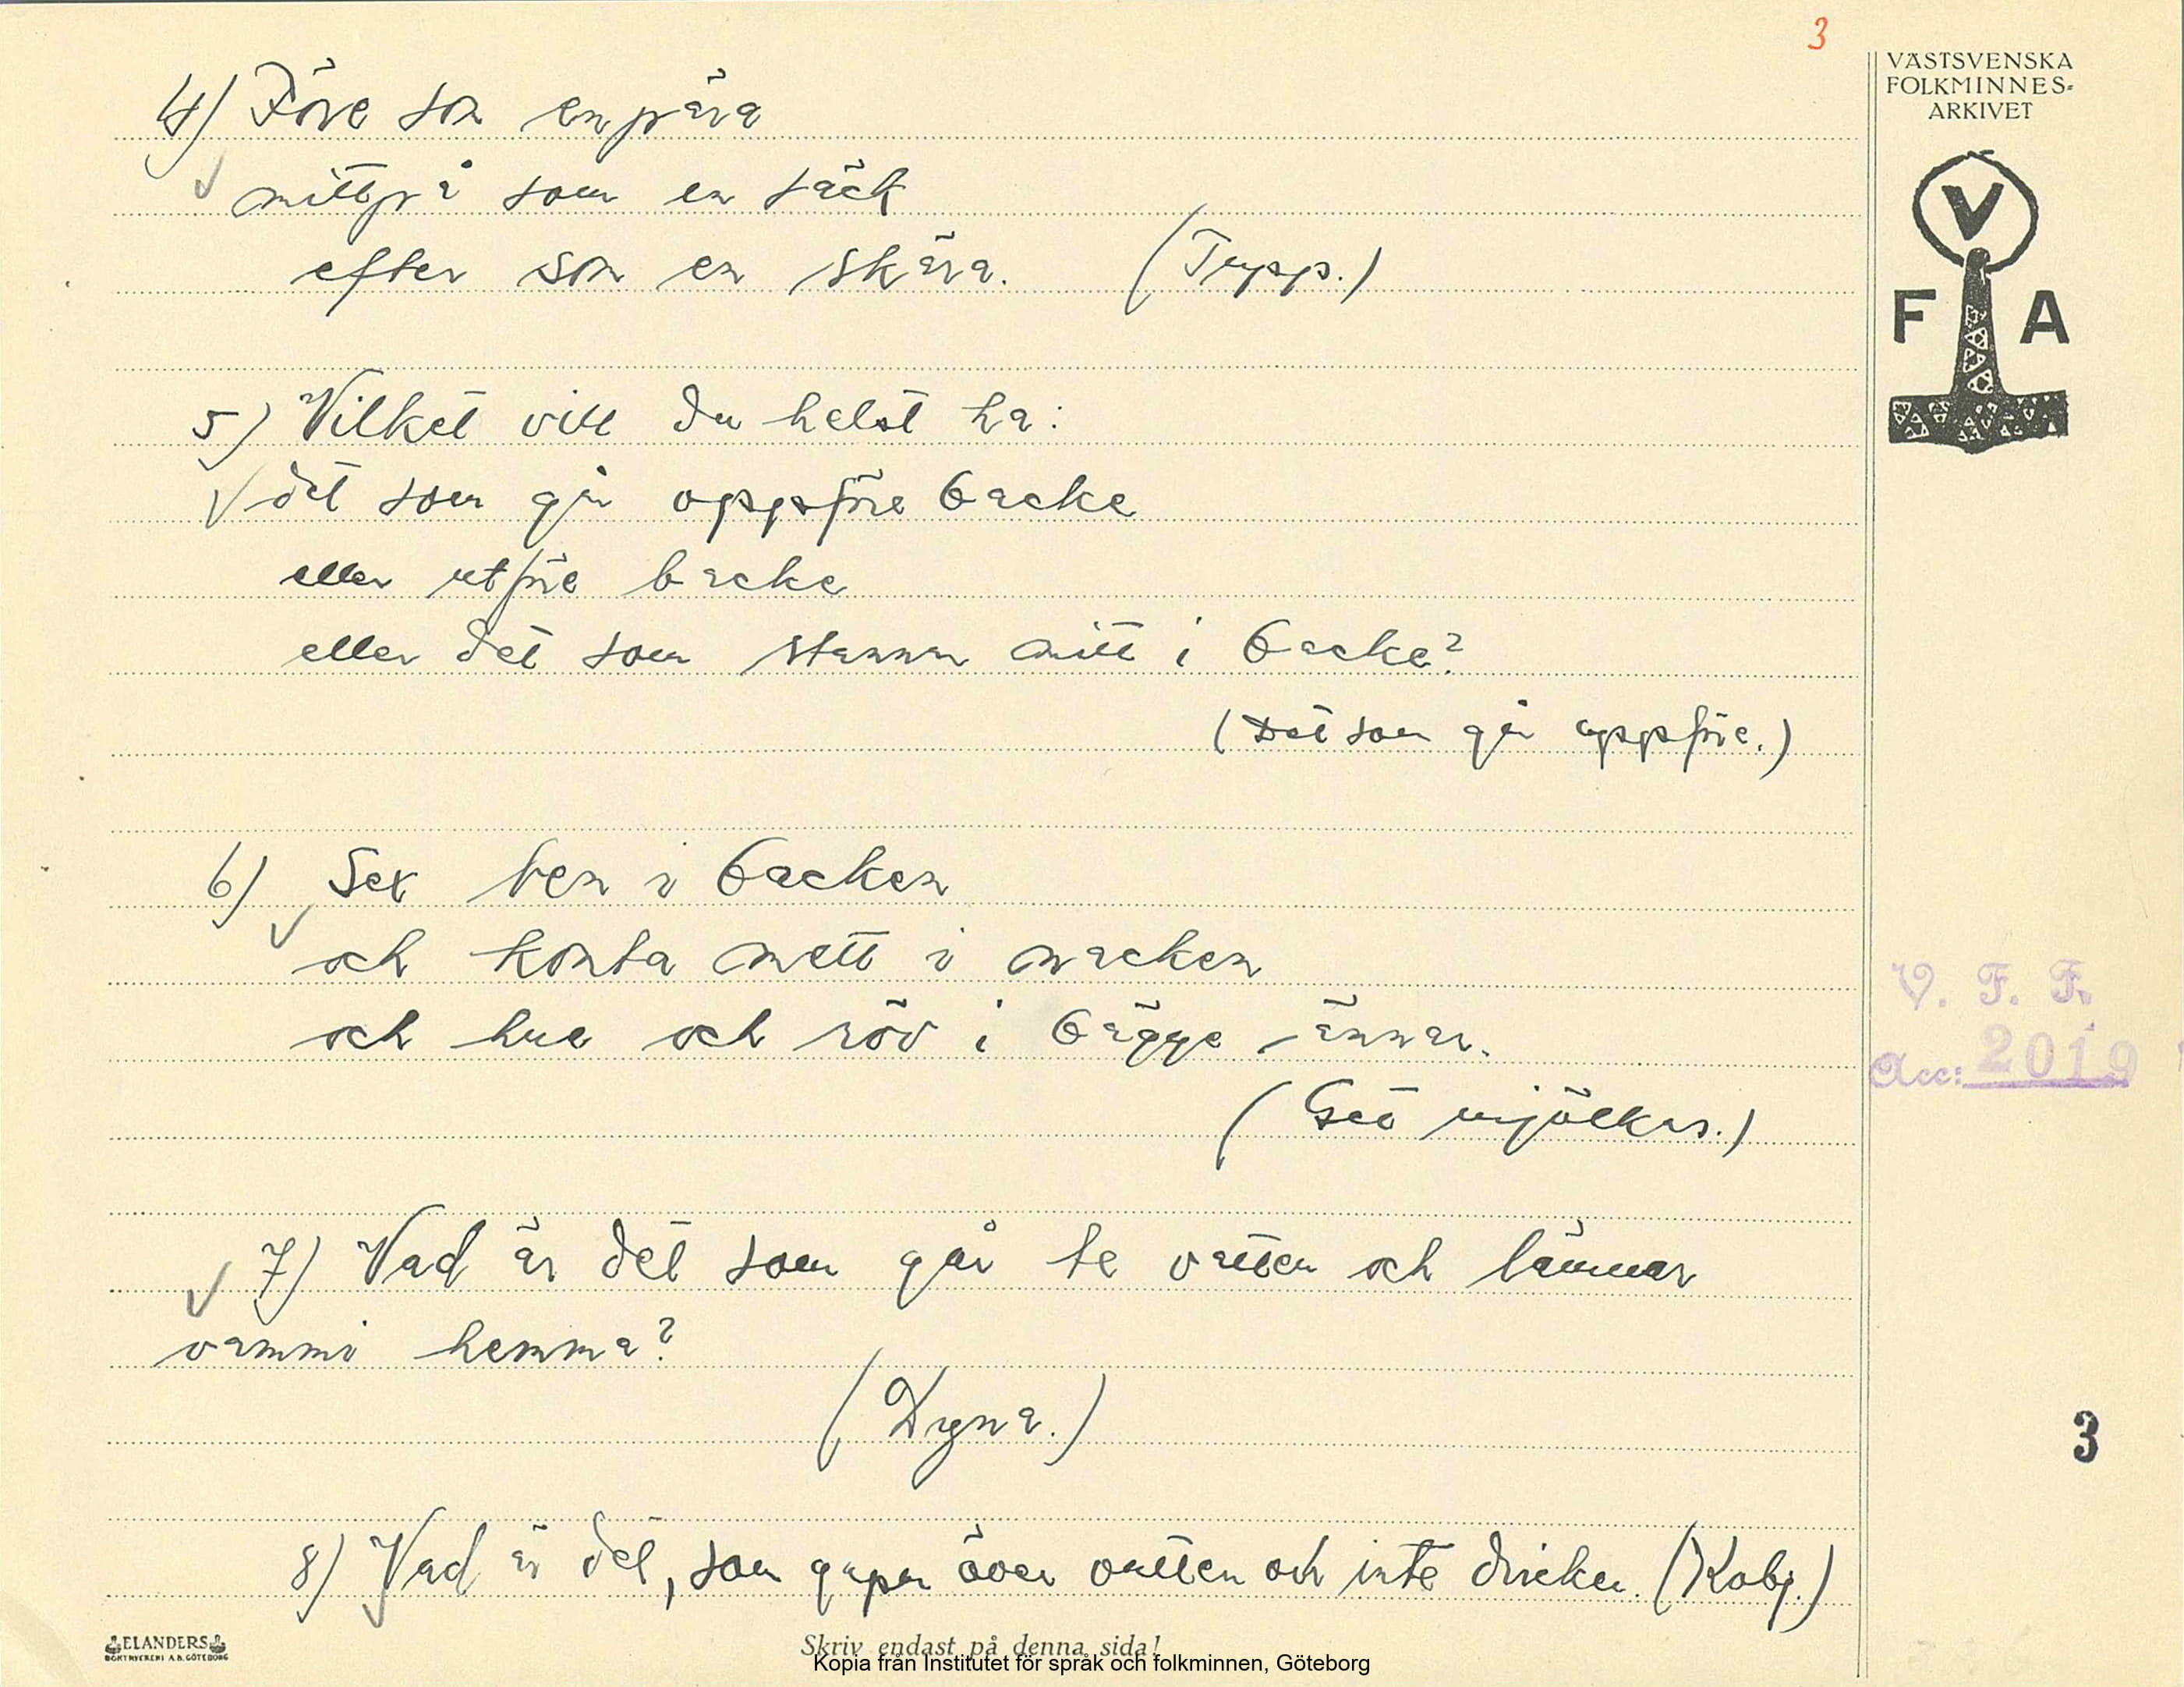 3
VÄSTSVENSKA
FOLKMINNES-
ARKIVET
V
F A
4) Före som en pära
mittpå som en säck
efter som en skära. (Tupp.)
5) Vilket vill du helst ha:
det som går oppföre backe
eller utföre backe
eller det som stannar mitt i backe?
(Det som går oppföre.)
6) Sex ben i backen
och konta mett i nacken
och hue och röv i bägge ännar.
(Geö mjölkas.)
7) Vad är det som går te vatten och lämnar
vammi hemma?
(Dyna.)
8) Vad är det, som gapar över vatten och inte dricker. (Kobj.)
V. F. F.
Acc: 2019
3
ELANDERS
BOKTRYCKERI A.B. GÖTEBORG
Skriv endast på denna sida!
Kopia från Institutet för språk och folkminnen, Göteborg